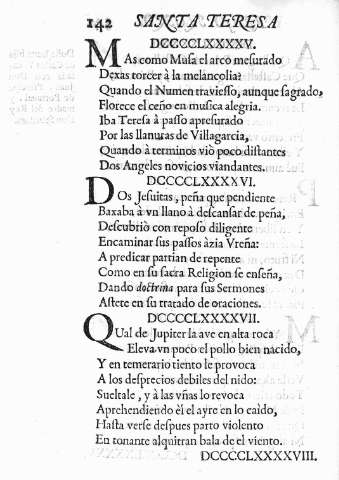 142 SANTA TERESA
DCCCCLXXXXV.
MAs como Musa el arco mesurado
Dexas torcer à la melancolia?
Quando el Numen traviesso, aunque sagrado,
Florece el ceño en musica alegria.
Iba Teresa à passo apresurado
Por las llanuras de Villagarcia,
Quando à terminos viò poco distantes
Dos Angeles novicios viandantes.
DCCCCLXXXXVI.
DOs Jesuitas, peña que pendiente
Baxaba à vn llano à descansar de peña,
Descubriò con reposo diligente
Encaminar sus passos àzia Vreña:
A predicar partian de repente
Como en su sacra Religion se enseña,
Dando doctrina para sus Sermones
Astete en su tratado de oraciones.
DCCCCLXXXXVII.
QUal de Jupiter la ave en alta roca
Eleva vn poco el pollo bien nacido,
Y en temerario tiento le provoca
A los desprecios debiles del nido:
Sueltale, y à las vñas lo revoca
Aprehendiendo èl el ayre en lo caìdo,
Hasta verse despues parto violento
En tonante alquitran bala de el viento.
DCCCCLXXXXVIII.